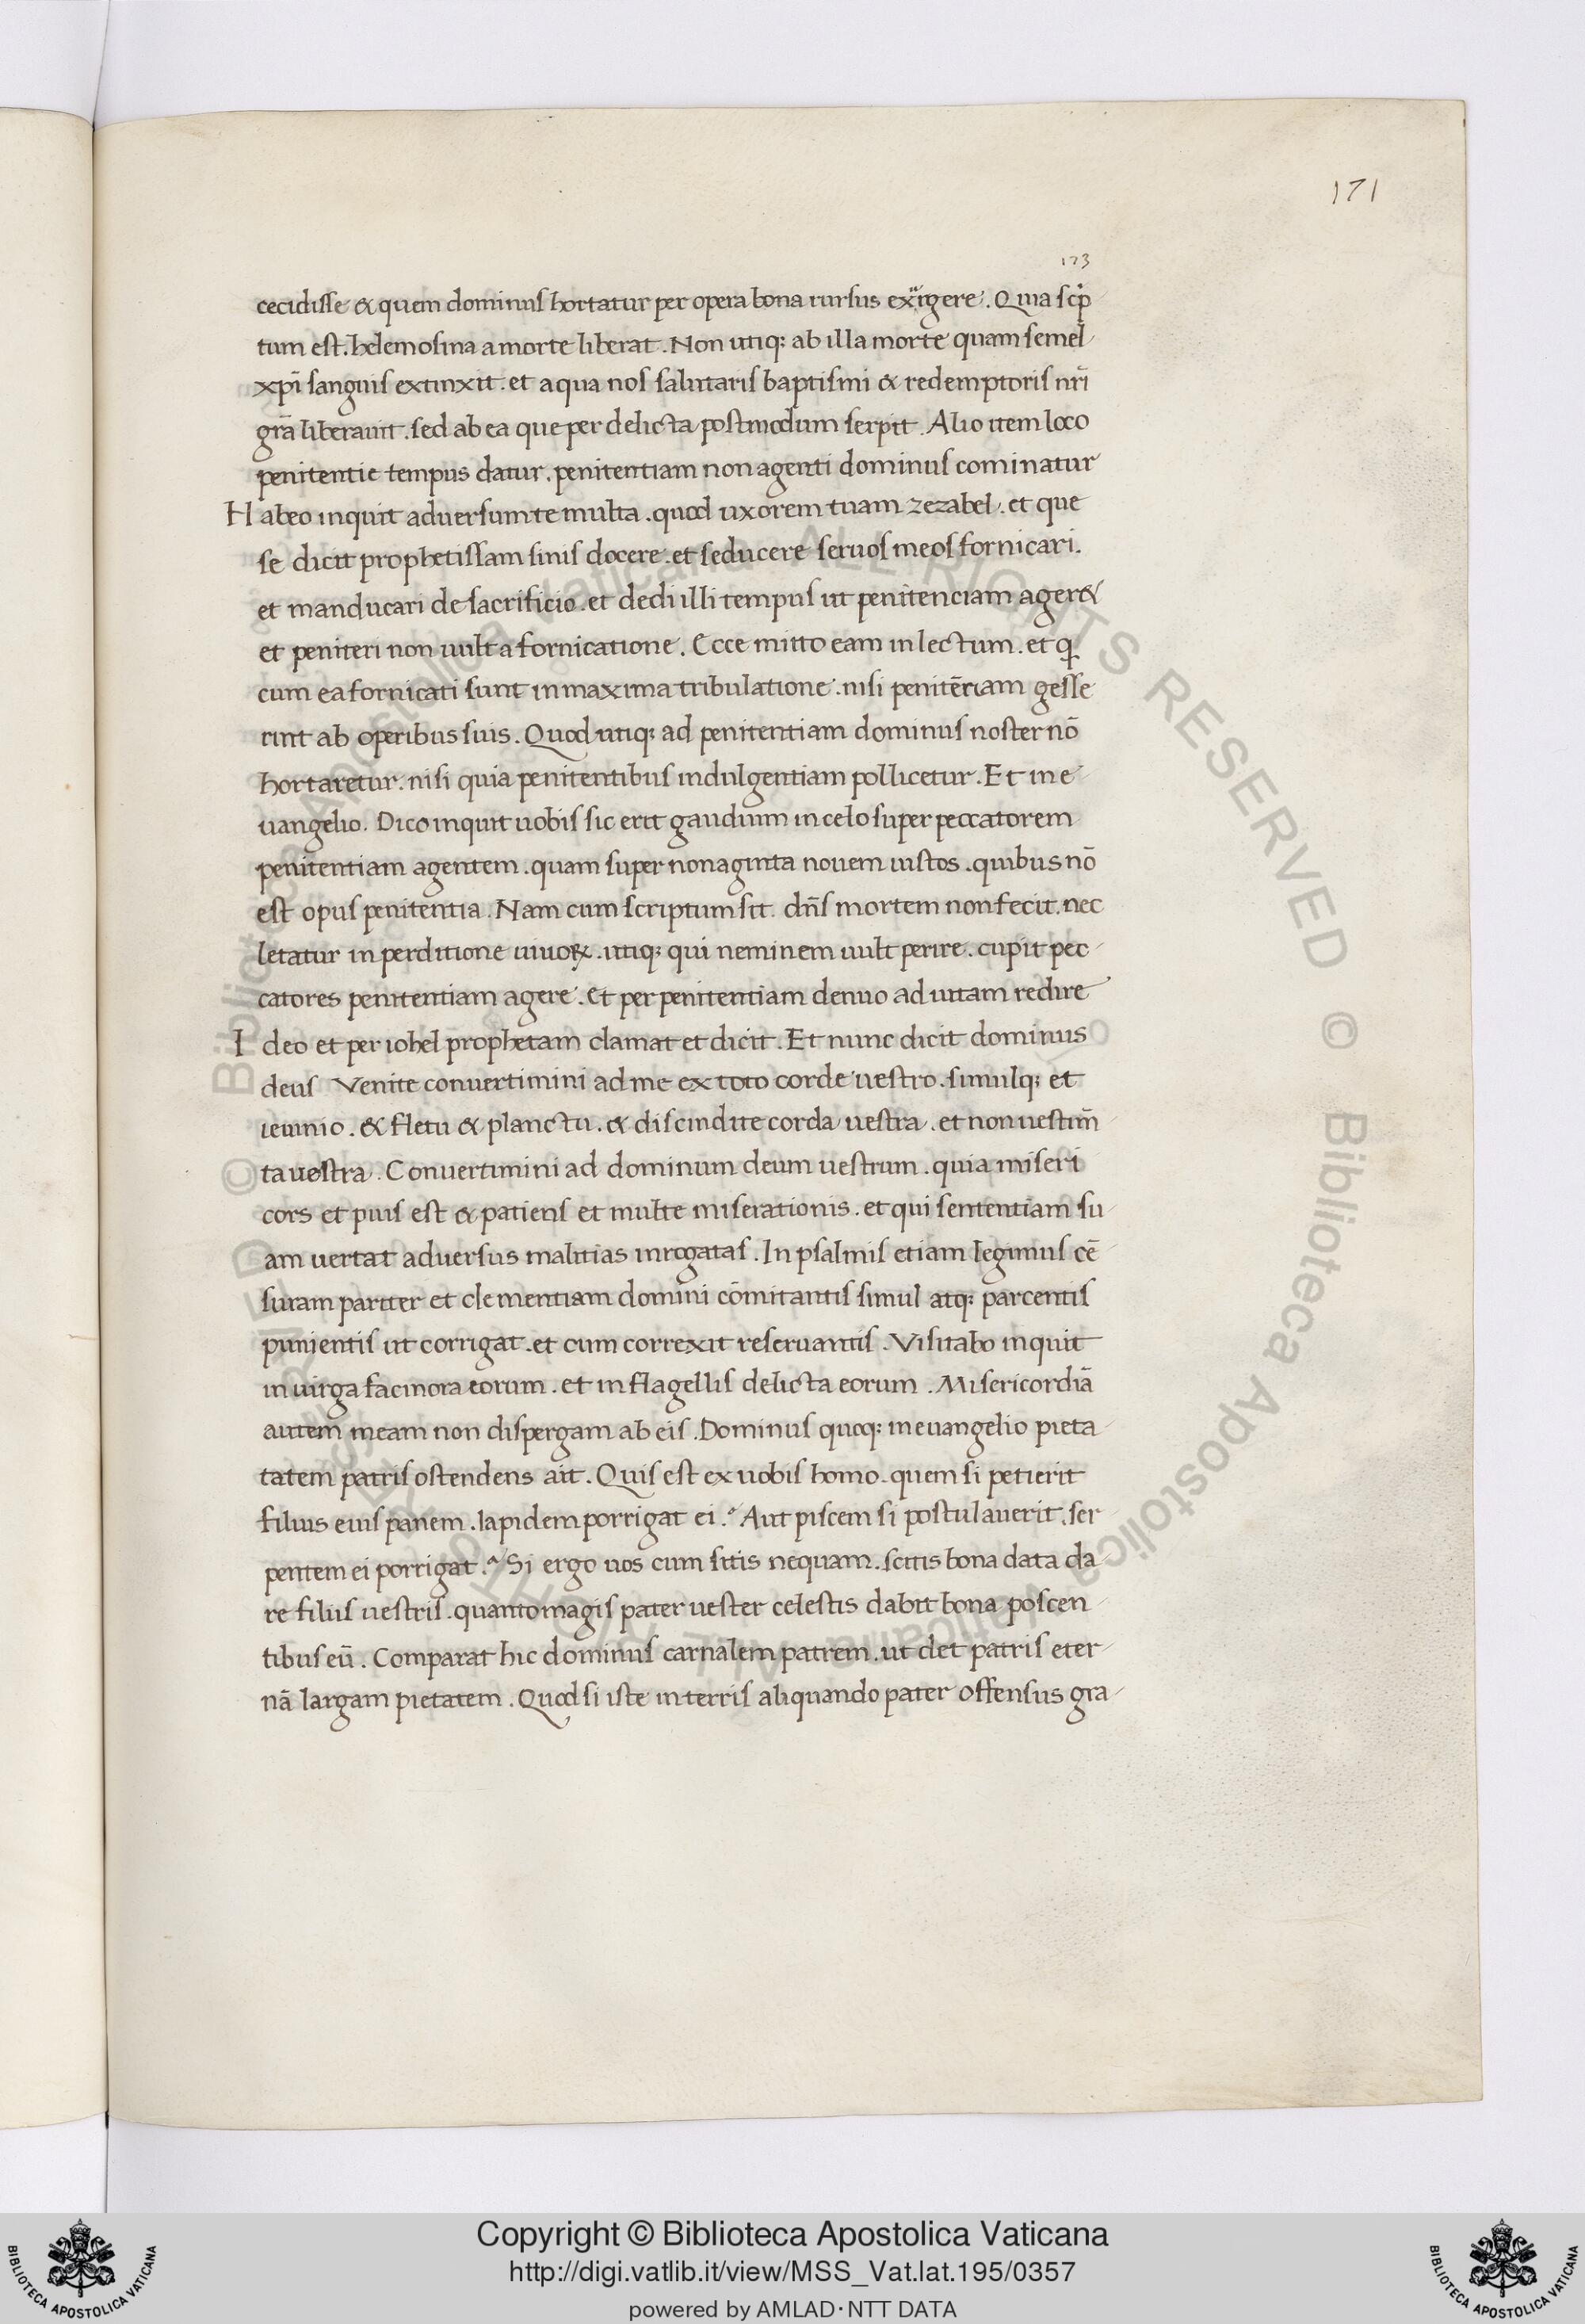 171
173
cecidisse & quem dominus hortatur per opera bona rursus exurgere. Quia scp̃
tum est. helemosina a morte liberat. Non utiq; ab illa morte quam semel
xp̃i sanguis extinxit. et aqua nos salutaris baptismi & redemptoris nr̃i
gr̃a liberauit. sed ab ea que per delicta postmodum serpit. Alio item loco
penitentie tempus datur. penitentiam non agenti dominus cominatur
Habeo inquit aduersum te multa. quod uxorem tuam zezabel. et que
se dicit prophetissam sinis docere. et seducere seruos meos fornicari.
et manducari de sacrificio. et dedi illi tempus ut penitenciam ager&
et peniteri non uult a fornicatione. Ecce mitto eam in lectum. et q
cum ea fornicati sunt in maxima tribulatione. nisi penitẽtiam gesse
rint ab operibus suis. Quod utiq; ad penitentiam dominus noster nõ
hortaretur. nisi quia penitentibus indulgentiam pollicetur. Et in e
uangelio. Dico inquit uobis sic erit gaudium in celo super peccatorem
penitentiam agentem. quam super nonaginta nouem iustos. quibus nõ
est opus penitentia. Nam cum scriptum sit. dñs mortem non fecit. nec
letatur in perditione uiuoꝝ. utiq; qui neminem uult perire. cupit pec
catores penitentiam agere. et per penitentiam denuo ad uitam redire
Ideo et per iohel prophetam clamat et dicit. Et nunc dicit dominus
deus Venite conuertimini ad me ex toto corde uestro. simulq; et
ieiunio. & fletu & planctu. & discindite corda uestra. et non uestim̃
ta uestra. Conuertimini ad dominum deum uestrum. quia miseri
cors et pius est & patiens et multe miserationis. et qui sententiam su
am uertat aduersus malitias inrogatas. In psalmis etiam legimus cẽ
suram pariter et clementiam domini cõmitantis simul atq; parcentis
punientis ut corrigat. et cum correxit reseruantis. Visitabo inquit
in uirga facinora eorum. et in flagellis delicta eorum. Misericordiã
autem meam non dispergam ab eis. Dominus quoq; in euangelio pieta
tatem patris ostendens ait. Quis est ex uobis homo. quem si petierit
filius eius panem. lapidem porrigat ei? Aut piscem si postulauerit. ser
pentem ei porrigat? Si ergo uos cum sitis nequam. scitis bona data da
re filiis uestris. quanto magis pater uester celestis dabit bona poscen
tibus eũ. Comparat hic dominus carnalem patrem. ut det patris eter
nã largam pietatem. Quod si iste in terris aliquando pater offensus gra
© Biblioteca Apostolica Vaticana ALL RIGHTS RESERVED
Copyright © Biblioteca Apostolica Vaticana
http://digi.vatlib.it/view/MSS_Vat.lat.195/0357
powered by AMLAD·NTT DATA
BIBLIOTECA APOSTOLICA VATICANA
BIBLIOTECA APOSTOLICA VATICANA